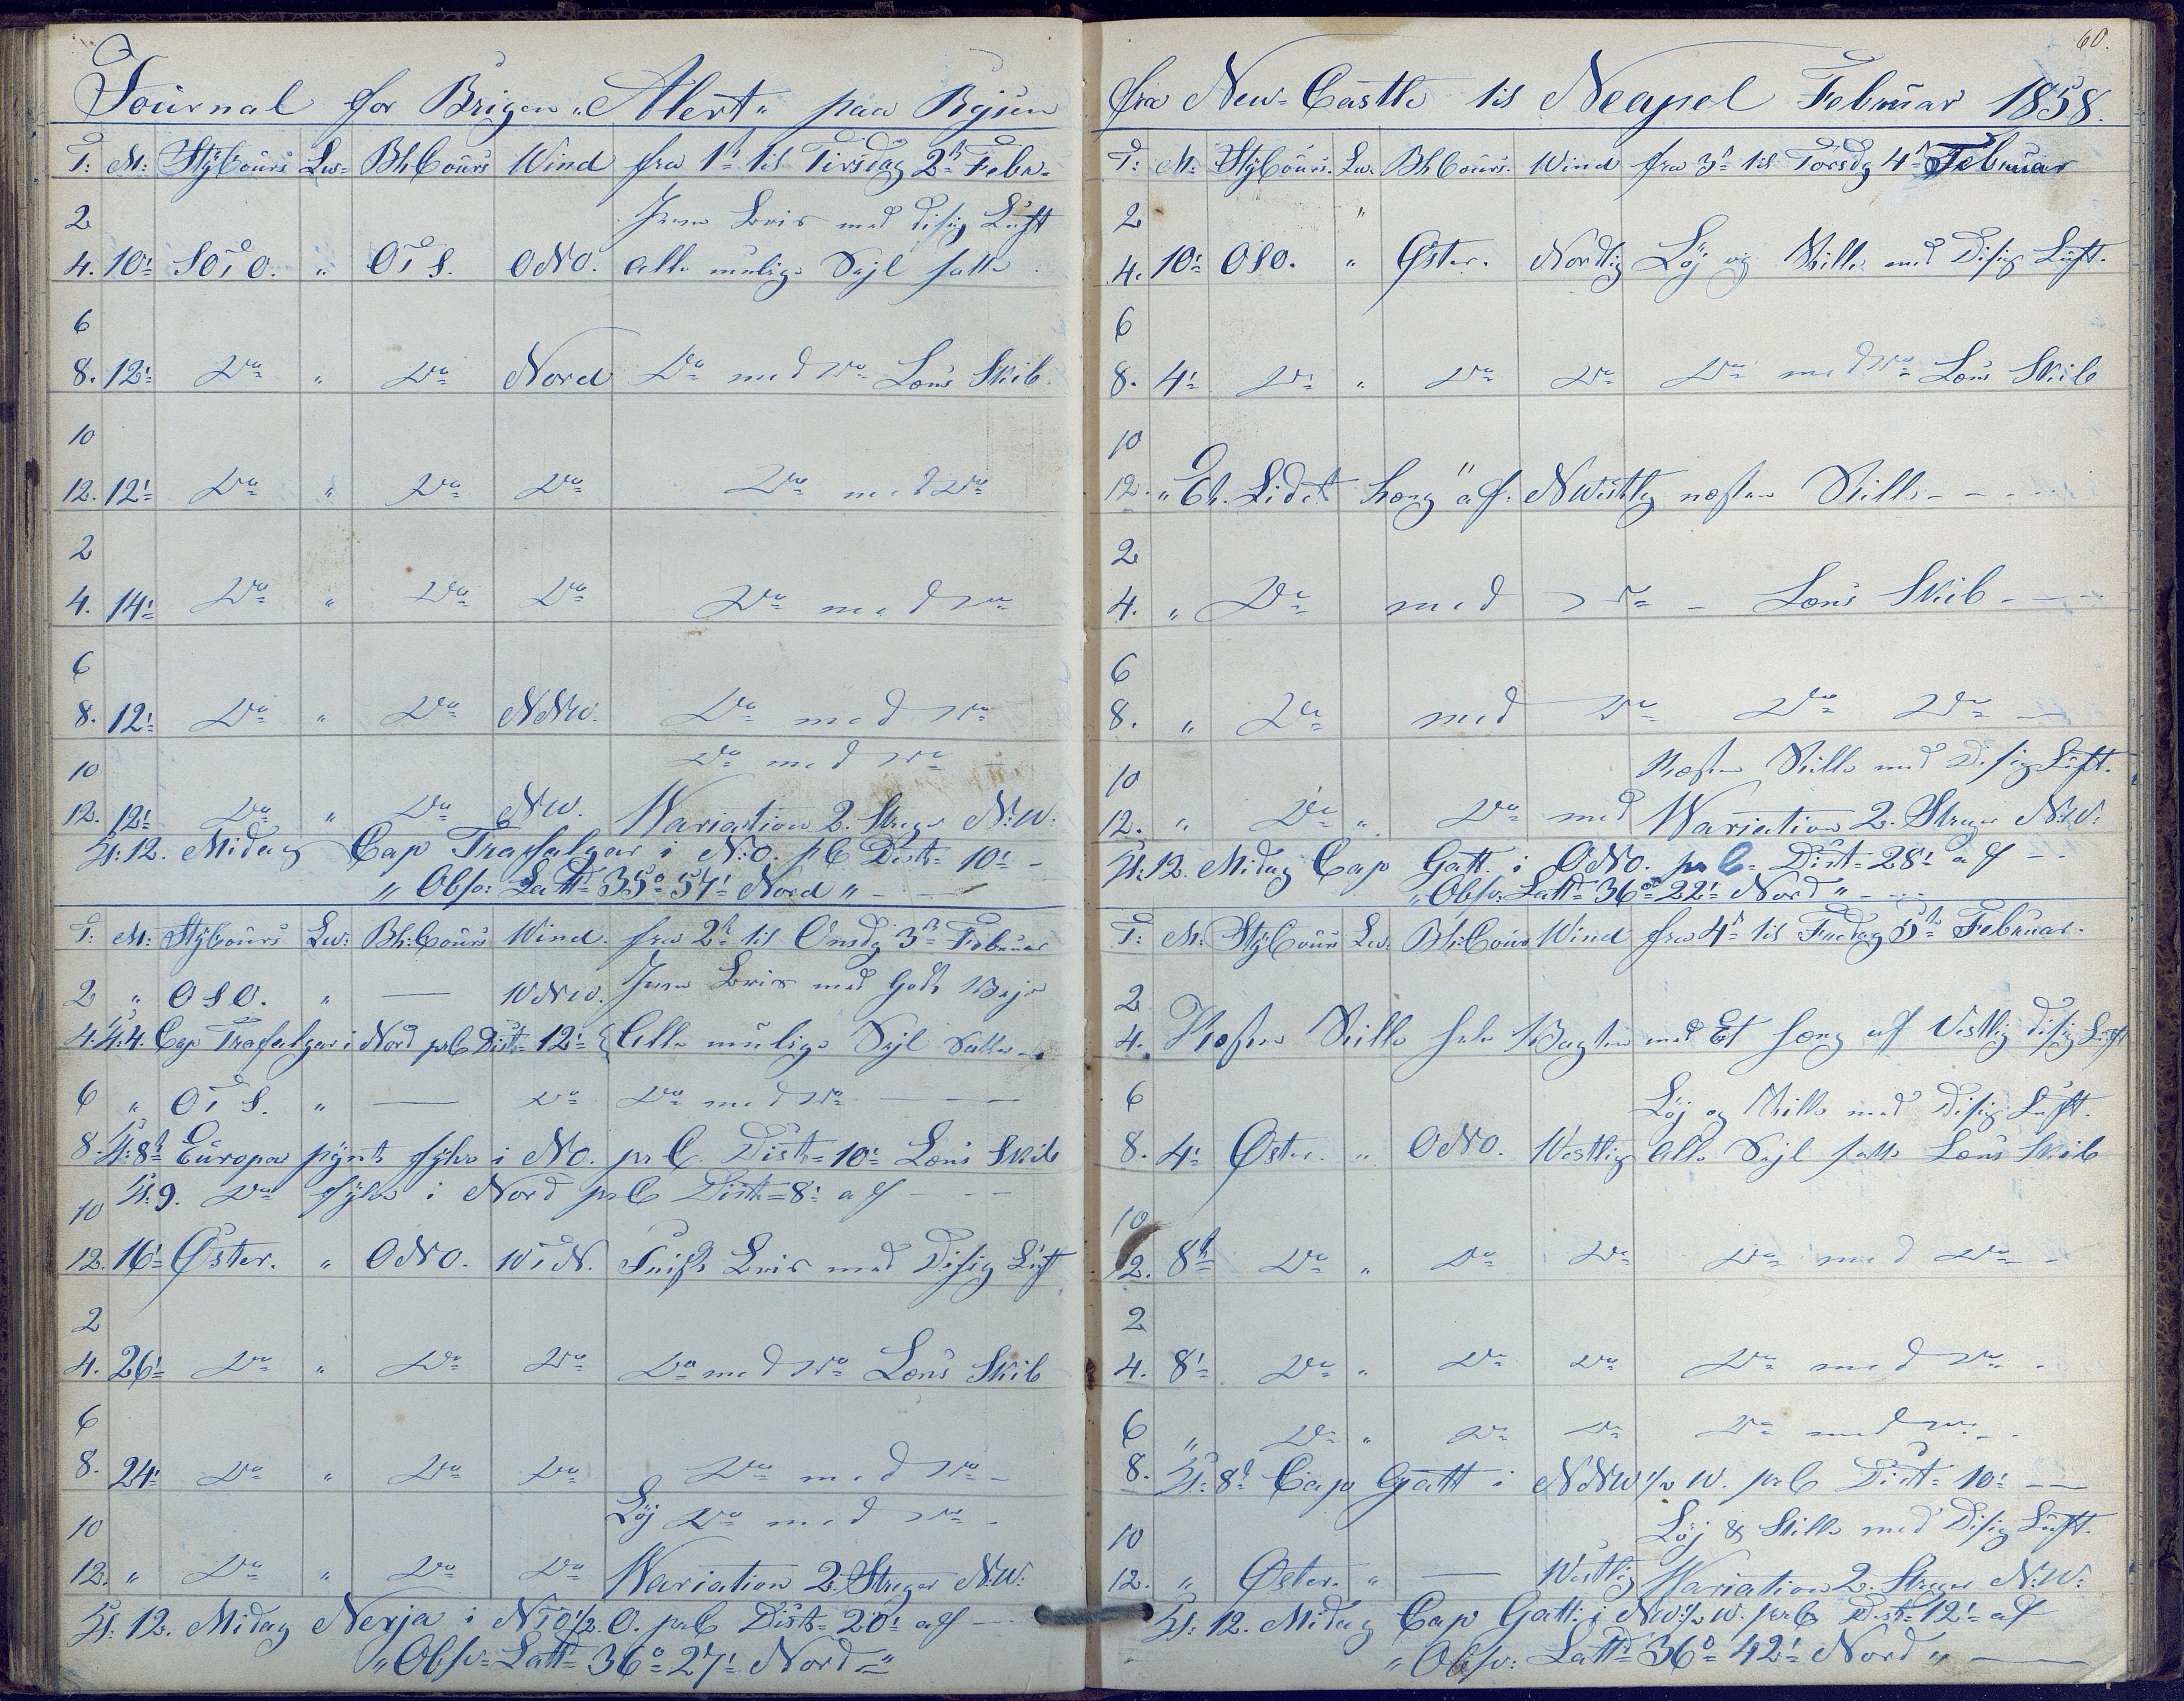 Journal for Brigen „Alert„ paa Rejsen
T: M: StyCours Lw= BhCours Wind fra 1ste til Tirsdag 2den Febr.
2 Jevn Bris med disig Luft
4. 10' SOTO. „ OTS. ONO. alle mulige Sejl satte.
6
8. 12' Do „ Do Nord Do med Do Læns Skib.
10
12. 12' Do „ Do Do Do med Do
2
4. 14' Do „ Do Do Do med Do
6
8. 12' Do „ Do NNW. Do med Do
10 Do med Do
12. 12' Do „ Do NW. Wariation 2. Streger N:W.
Kl: 12. Midag Cap Trafalgar i N:O. pC Dist= 10' –
„Obsv: Lattd= 35° 57' Nord„
T: M: StyCours Lw: Bh:Cours Wind. fra 2den til Onsdg 3die Februar
2 „ OSO. „ — WNW. Jevn Bris med Godt Vejr
4. Kl:4. Cap Trafalgar i Nord prC Dist= 12' { Alle mulige Sejl satte
6 „ OTS. „ — Do Do med Do
8. Kl: 8t Europa pynt fyhr i NO. pr C. Dist= 10' Læns Skib
10 Kl: 9. Do fyhr i Nord prC Dist= 8' af
12. 16' Øster. „ ONO. WTN. Frisk Bris med Disig Luft
2
4. 26' Do „ Do Do Do med Do Læns Skib
6
8. 24' Do „ Do Do Do med Do
10 Løj Do med Do
12. „ Do „ Do Do Wariation 2. Streger N:W:
Kl: 12. Midag Nerja i NTO½.O. prC Dist= 20' af
„Obsv= Lattd= 36° 27' Nord„
60.
fra New=Castle til Neapel Februar 1858.
T: M: StyCours. Lw. BhCours. Wind fra 3die til Torsdg 4de Februar
2 „
4. 10' OSO. „ Øster. Nordlig Løj og Stille med Disig Luft.
6
8. 4' Do „ Do Do Do med Do Læns Skib
10
12. „Et. Lidet hæng„ af: NWestlig næsten Stille
2
4. „ Do med Do – Læns Skib
6
8. „ Do med Do Do Do
10 Næsten Stille med Disig Luft.
12. „ Do „ Do med Wariation 2. Streger N:W:
Kl:12. Midag Cap Gatt. i ONO. pr C= Dist= 28' af
„Obsv: Lattd= 36° 22' Nord„
T: M: StyCours Lw. Bh:Cours Wind fra 4de til Fredag 5te Februar.
2
4. Næsten Stille hele Vagten med Et hæng af Vestlig disig Luft
6 Løj og Stille med Disig Luft.
8. 4' Øster. „ ONO. Westlig Alle Sejl satte Læns Skib
10
12. 8' Do „ Do Do Do med Do
2
4. 8' Do „ Do Do Do med Do
6 „ Do „ Do Do Do med Do
8. Kl: 8t Cap Gatt i NNW½ W. prC Dist= 10'
10 Løj & Stille med Disig Luft.
12. „ Øster. „ — Westlig Wariation 2. Streger N:W:
Kl: 12. Midag Cap Gatt: i NW½ W. prC Dist= 12' af
„Obsv: Lattd= 36° 42' Nord„